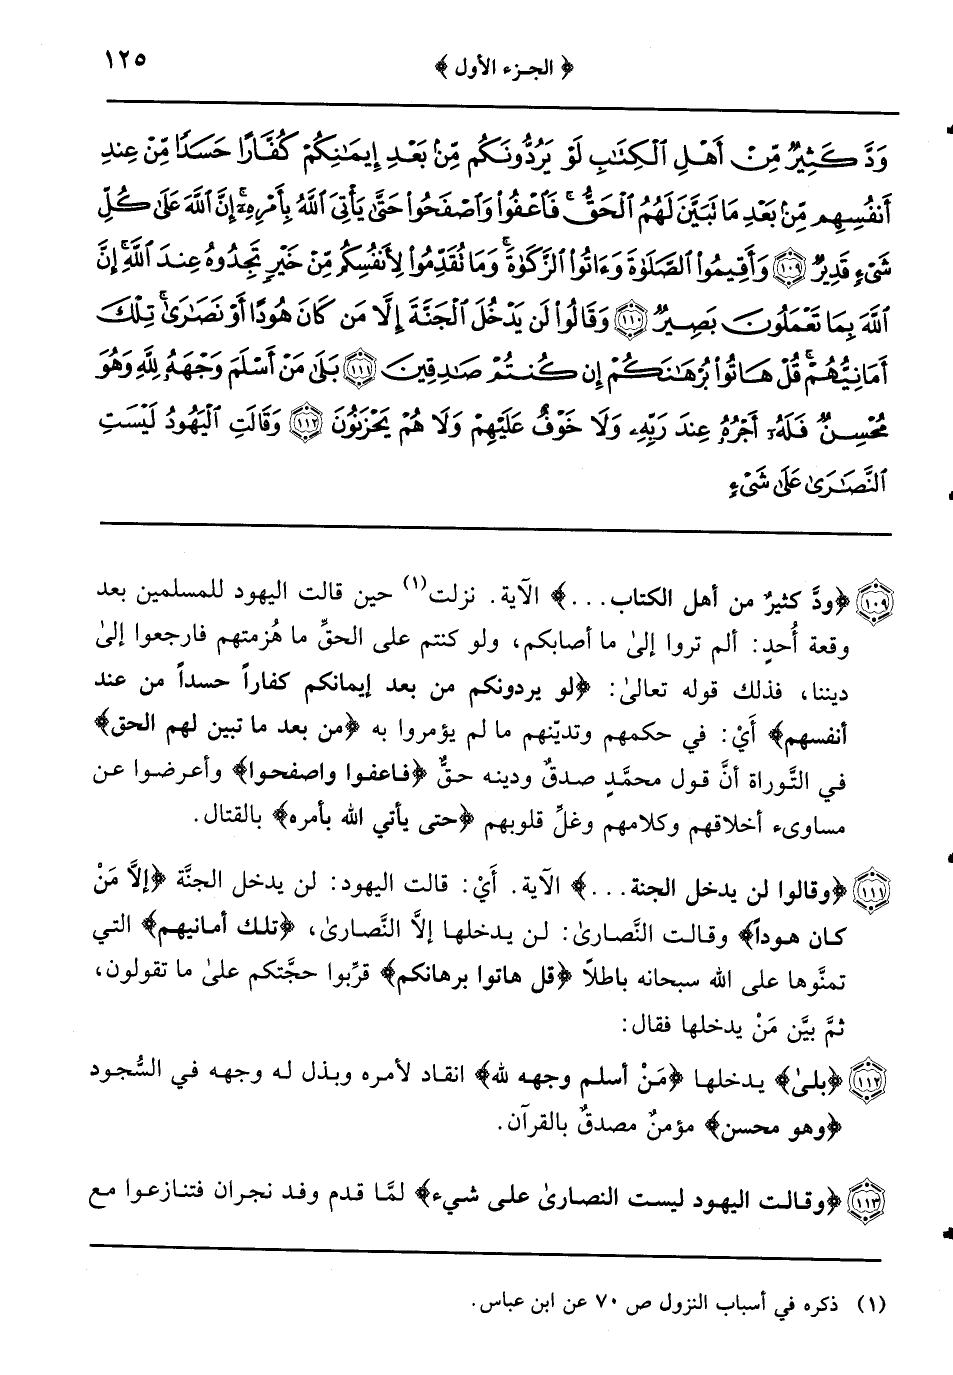 ﴿ الجزء الأول ﴾
١٢٥
وَدَّ كَثِيرٌ مِّنْ أَهْلِ ٱلْكِتَٰبِ لَوْ يَرُدُّونَكُم مِّنۢ بَعْدِ إِيمَٰنِكُمْ كُفَّارًا حَسَدًا مِّنْ عِندِ
أَنفُسِهِم مِّنۢ بَعْدِ مَا تَبَيَّنَ لَهُمُ ٱلْحَقُّ ۖ فَٱعْفُوا۟ وَٱصْفَحُوا۟ حَتَّىٰ يَأْتِىَ ٱللَّهُ بِأَمْرِهِۦٓ ۗ إِنَّ ٱللَّهَ عَلَىٰ كُلِّ
شَىْءٍ قَدِيرٌ ١٠٩ وَأَقِيمُوا۟ ٱلصَّلَوٰةَ وَءَاتُوا۟ ٱلزَّكَوٰةَ ۚ وَمَا تُقَدِّمُوا۟ لِأَنفُسِكُم مِّنْ خَيْرٍ تَجِدُوهُ عِندَ ٱللَّهِ ۗ إِنَّ
ٱللَّهَ بِمَا تَعْمَلُونَ بَصِيرٌ ١١٠ وَقَالُوا۟ لَن يَدْخُلَ ٱلْجَنَّةَ إِلَّا مَن كَانَ هُودًا أَوْ نَصَٰرَىٰ ۗ تِلْكَ
أَمَانِيُّهُمْ ۗ قُلْ هَاتُوا۟ بُرْهَٰنَكُمْ إِن كُنتُمْ صَٰدِقِينَ ١١١ بَلَىٰ مَنْ أَسْلَمَ وَجْهَهُۥ لِلَّهِ وَهُوَ
مُحْسِنٌ فَلَهُۥٓ أَجْرُهُۥ عِندَ رَبِّهِۦ وَلَا خَوْفٌ عَلَيْهِمْ وَلَا هُمْ يَحْزَنُونَ ١١٢ وَقَالَتِ ٱلْيَهُودُ لَيْسَتِ
ٱلنَّصَٰرَىٰ عَلَىٰ شَىْءٍ
١٠٩ ﴿ودَّ كثيرٌ من أهل الكتاب...﴾ الآية. نزلت(١) حين قالت اليهود للمسلمين بعد
وقعة أُحدٍ: ألم تروا إلىٰ ما أصابكم، ولو كنتم على الحقِّ ما هُزمتهم فارجعوا إلىٰ
ديننا، فذلك قوله تعالىٰ: ﴿لو يردونكم من بعد إيمانكم كفاراً حسداً من عند
أنفسهم﴾ أَيْ: في حكمهم وتديّنهم ما لم يؤمروا به ﴿من بعد ما تبين لهم الحق﴾
في التَّوراة أنَّ قول محمَّدٍ صدقٌ ودينه حقٌّ ﴿فاعفوا واصفحوا﴾ وأعرضوا عن
مساوىء أخلاقهم وكلامهم وغلِّ قلوبهم ﴿حتى يأتي الله بأمره﴾ بالقتال.
١١١ ﴿وقالوا لن يدخل الجنة...﴾ الآية. أَيْ: قالت اليهود: لن يدخل الجنَّة ﴿إلاَّ مَنْ
كان هوداً﴾ وقالت النَّصارىٰ: لن يدخلها إلاَّ النَّصارىٰ، ﴿تلك أمانيهم﴾ التي
تمنَّوها على الله سبحانه باطلاً ﴿قل هاتوا برهانكم﴾ قرِّبوا حجَّتكم علىٰ ما تقولون،
ثمَّ بيَّن مَنْ يدخلها فقال:
١١٢ ﴿بلىٰ﴾ يدخلها ﴿مَنْ أسلم وجهه لله﴾ انقاد لأمره وبذل له وجهه في السُّجود
﴿وهو محسن﴾ مؤمنٌ مصدقٌ بالقرآن.
١١٣ ﴿وقالت اليهود ليست النصارىٰ على شيء﴾ لمَّا قدم وفد نجران فتنازعوا مع
(١) ذكره في أسباب النزول ص ٧٠ عن ابن عباس.